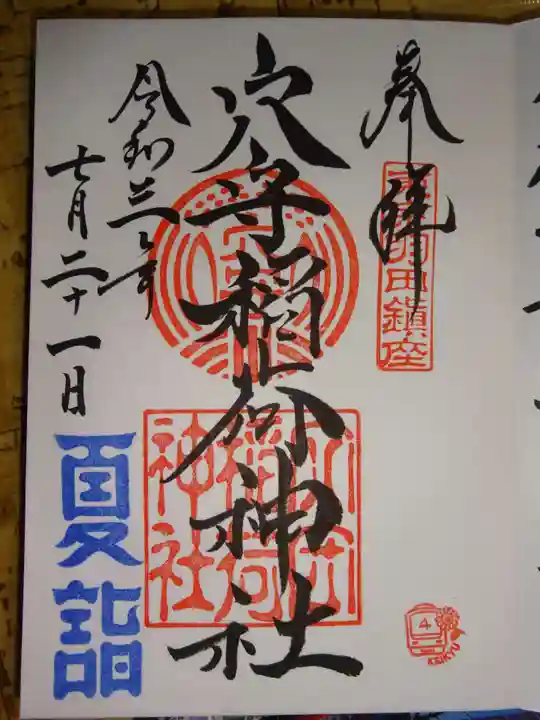 奉拝
東羽田鎮座
穴守稲荷神社
穴守稲荷神社
令和三年
七月二十一日
夏詣
4
KEIKYU